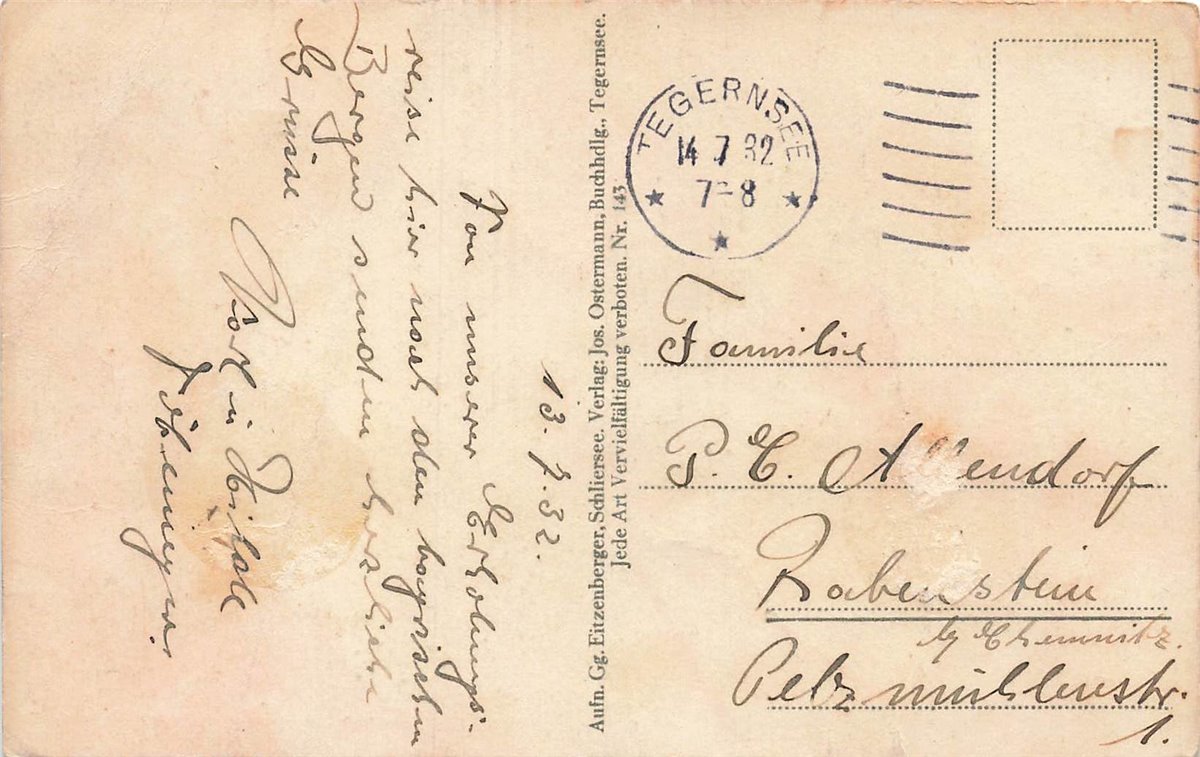 13. 7. 32.
Von unserer Erholungs-
reise hier nach den bayrischen
Bergen senden herzliche
Grüsse
Aufn. Gg. Eitzenberger, Schliersee. Verlag: Jos. Ostermann, Buchhdlg., Tegernsee.
Jede Art Vervielfältigung verboten. Nr. 143
TEGERNSEE
14 7 32
7-8
Familie
P. E. Allendorf
Rabenstein
b/ Chemnitz.
Pelzmühlenstr.
1.